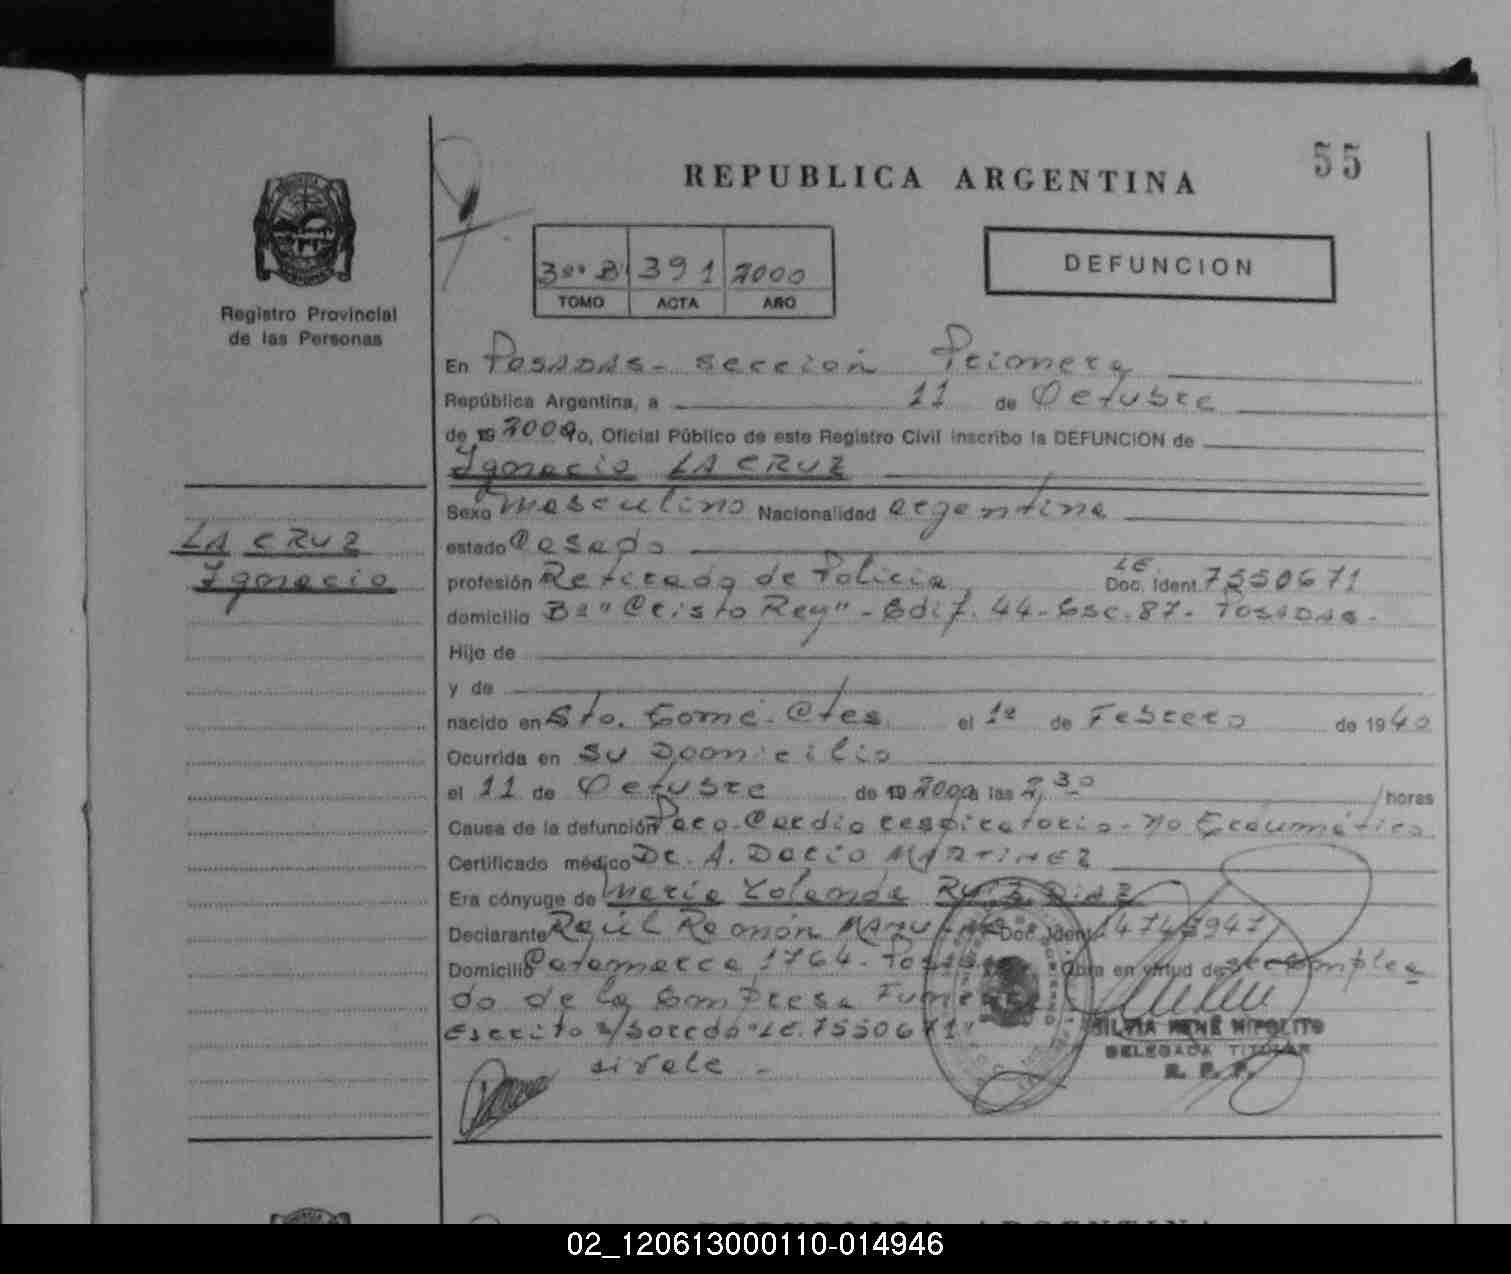 55
REPUBLICA ARGENTINA
DEFUNCION
3º "B" 391 2000
TOMO ACTA AÑO
Registro Provincial
de las Personas
En Posadas - Sección Primera
República Argentina, a 11 de Octubre
de 19 2000 yo, Oficial Público de este Registro Civil inscribo la DEFUNCION de
Ignacio LA CRUZ
Sexo Masculino Nacionalidad argentina
LA CRUZ
Ignacio
estado Casado
profesión Retirado de Policia L.E. Doc. Ident. 7550671
domicilio Bº "Cristo Rey" - Edif. 44 - Esc. 87 - Posadas -
Hijo de
y de
nacido en Sto. Tomé - Ctes. el 1º de Febrero de 1940
Ocurrida en su Domicilio
el 11 de Octubre de 19 2000 a las 2,30 horas
Causa de la defunción Paro - Cardio respiratorio - no traumático
Certificado médico Dr. A. Dario MARTINEZ
Era cónyuge de Maria Yolanda RUIZ DIAZ
Declarante Raúl Ramón Doc. Ident.
Domicilio Catamarca 1764 - Posadas Obra en virtud de ser emplea
do de la Empresa Fune
Escrito s/ "LE. 7550671"
si vale -
SILVIA RENÉ HIPOLITO
DELEGADA TITULAR
R. P. P.
REPUBLICA ARGENTINA
02_120613000110-014946